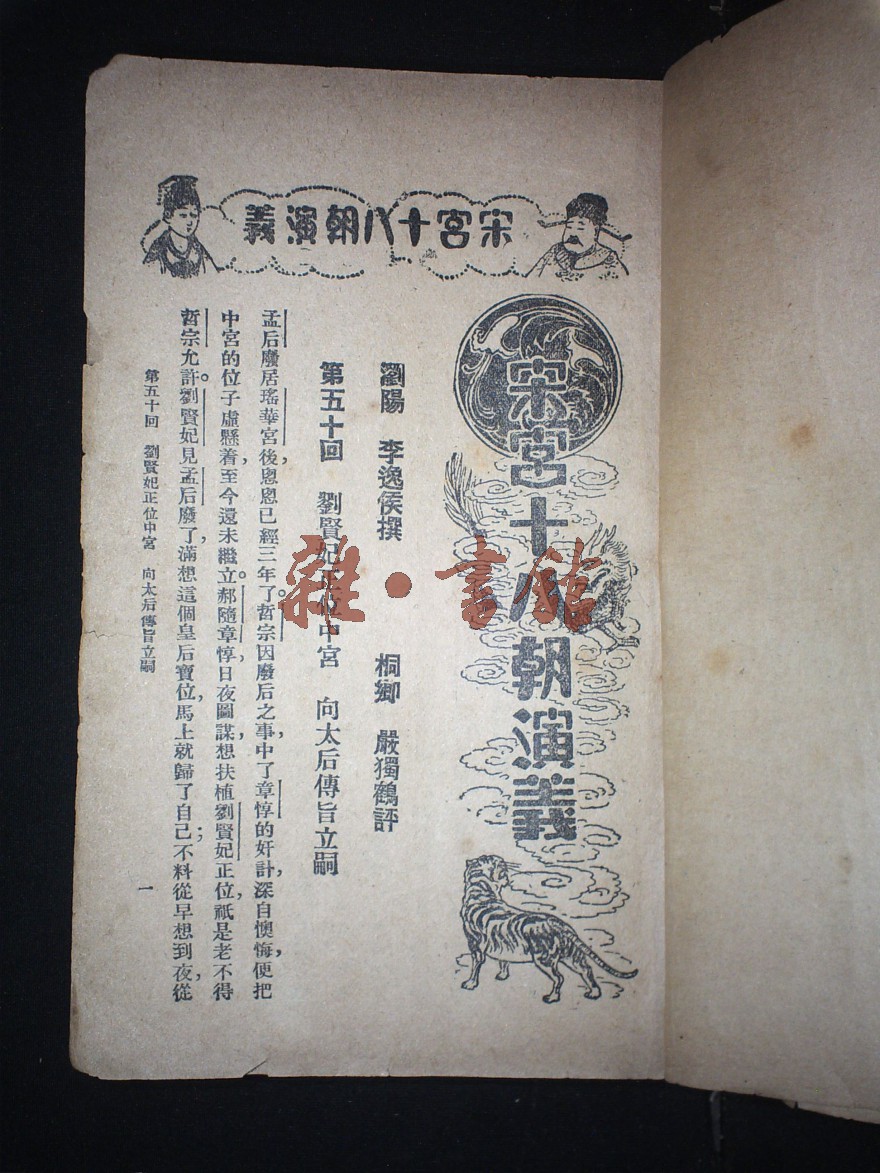 宋宮十八朝演義
宋宮十八朝演義
瀏陽 李逸侯撰 桐鄉 嚴獨鶴評
第五十回 劉賢妃正位中宮 向太后傳旨立嗣
孟后廢居瑤華宮後，悤悤已經三年了。哲宗因廢后之事，中了章惇的奸計，深自懊悔，便把
中宮的位子，虛懸着至今還未繼立。郝隨章惇，日夜圖謀，想扶植劉賢妃正位，祇是老不得
哲宗允許。劉賢妃見孟后廢了，滿想這個皇后寶位，馬上就歸了自己；不料從早想到夜，從
第五十回 劉賢妃正位中宮 向太后傳旨立嗣 一
雜·書館